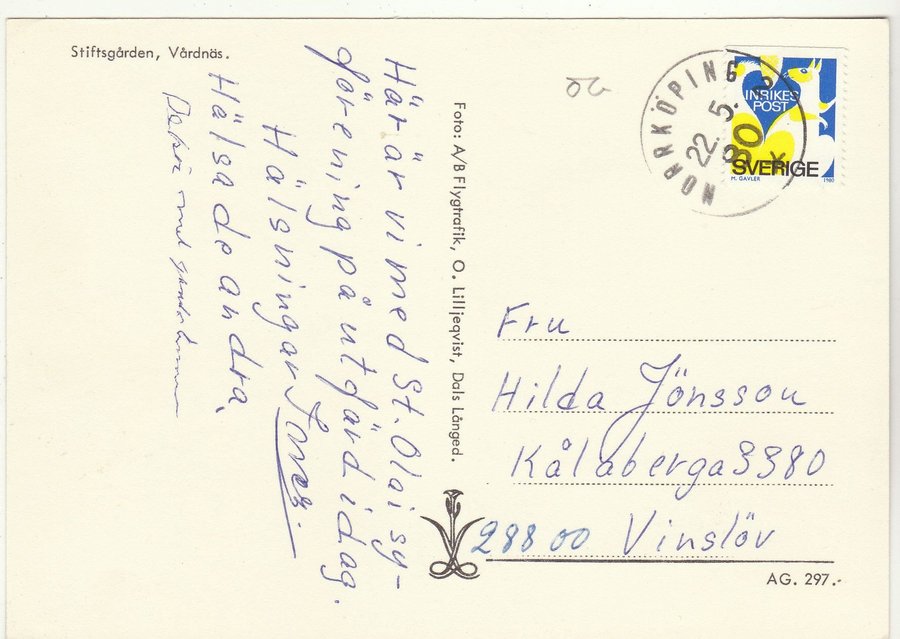 Stiftsgården, Vårdnäs.
Här är vi med St. Olai sy-
förening på utfärd i dag.
Hälsningar
Hälsa de andra,
Foto: A/B Flygtrafik, O. Lilljeqvist, Dals Långed.
20
NORRKÖPING
22. 5.
INRIKES
POST
80
SVERIGE
M. GAVLER
1980
Fru
Hilda Jönsson
Kålaberga 3380
28800 Vinslöv
AG. 297.-